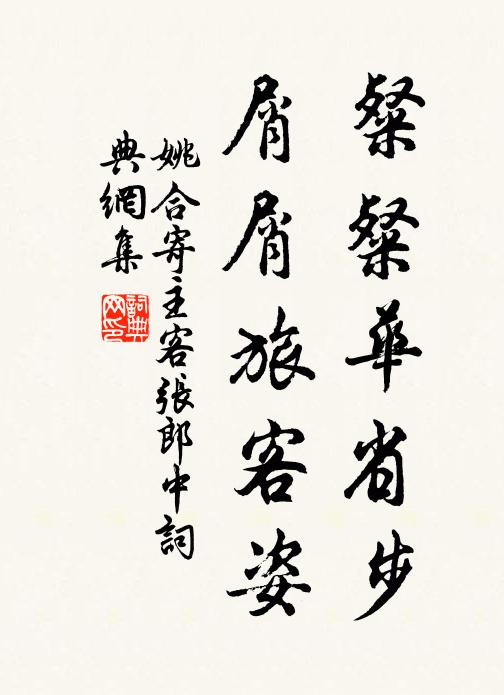 粲粲華省步
屑屑旅客姿
姚合寄主客張郎中詞
典網集
詞典網印